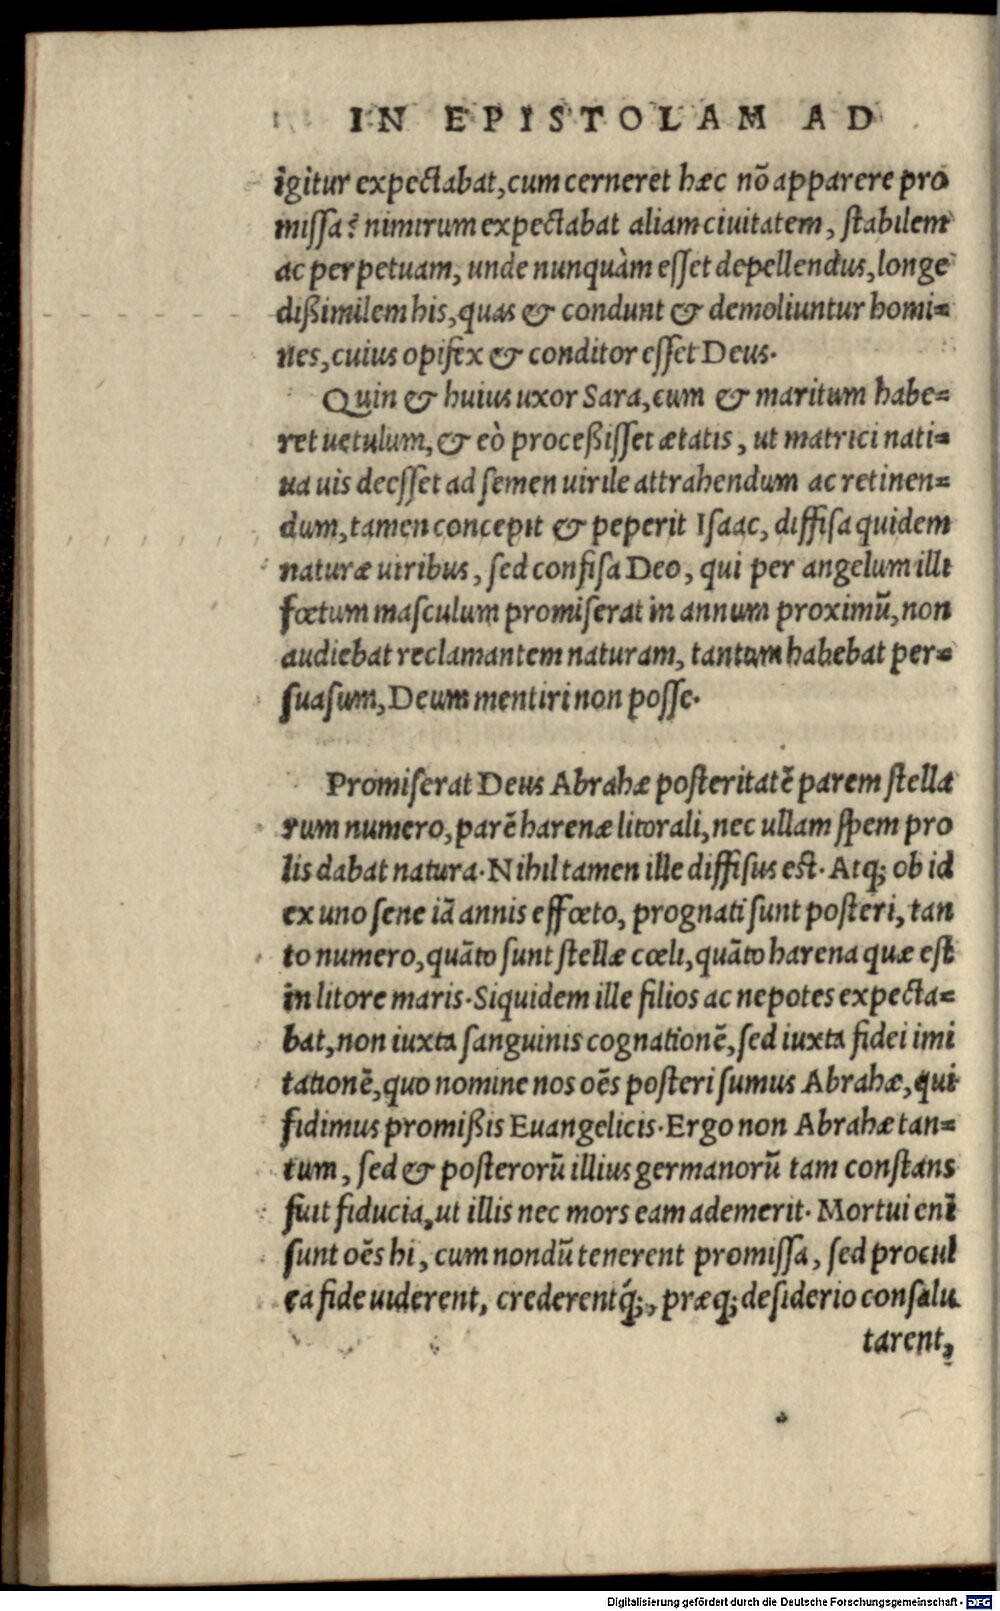 IN EPISTOLAM AD
igitur expectabat, cum cerneret hæc nõ apparere pro
missa? nimirum expectabat aliam ciuitatem, stabilem
ac perpetuam, unde nunquàm esset depellendus, longe
dißimilem his, quas & condunt & demoliuntur homi=
nes, cuius opifex & conditor esset Deus.
Quin & huius uxor Sara, cum & maritum habe=
ret uetulum, & eò proceßisset ætatis, ut matrici nati=
ua uis deesset ad semen uirile attrahendum ac retinen=
dum, tamen concepit & peperit Isaac, diffisa quidem
naturæ uiribus, sed confisa Deo, qui per angelum illi
fœtum masculum promiserat in annum proximũ, non
audiebat reclamantem naturam, tantum habebat per=
suasum, Deum mentiri non posse.
Promiserat Deus Abrahæ posteritatẽ parem stella
rum numero, parẽ harenæ litorali, nec ullam spem pro
lis dabat natura. Nihil tamen ille diffisus est. Atq; ob id
ex uno sene iã annis effœto, prognati sunt posteri, tan
to numero, quãto sunt stellæ cœli, quãto harena quæ est
in litore maris. Siquidem ille filios ac nepotes expecta=
bat, non iuxta sanguinis cognationẽ, sed iuxta fidei imi
tationẽ, quo nomine nos oẽs posteri sumus Abrahæ, qui
fidimus promißis Euangelicis. Ergo non Abrahæ tan=
tum, sed & posterorũ illius germanorũ tam constans
fuit fiducia, ut illis nec mors eam ademerit. Mortui enĩ
sunt oẽs hi, cum nondũ tenerent promissa, sed procul
ea fide uiderent, crederentq́;, præq; desiderio consalu
tarent,
Digitalisierung gefördert durch die Deutsche Forschungsgemeinschaft - DFG